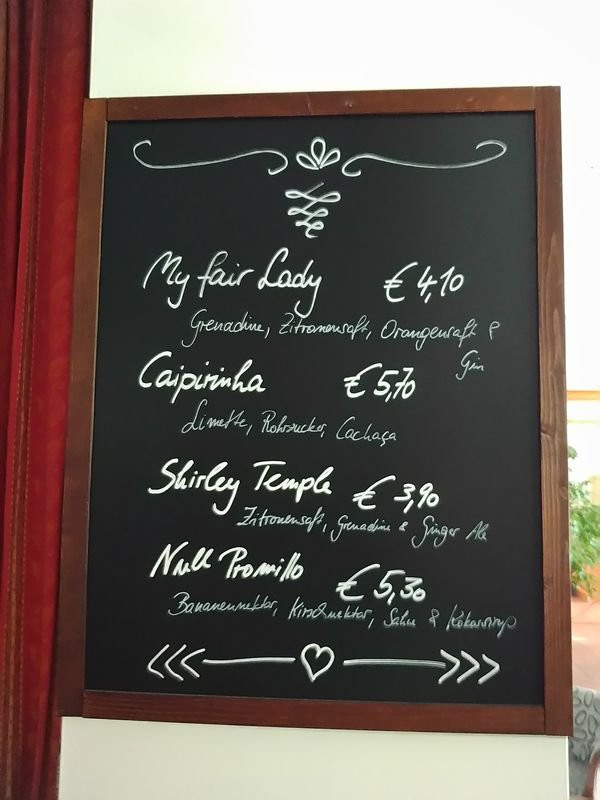 My fair Lady € 4,10
Grenadine, Zitronensaft, Orangensaft &
Gin
Caipirinha € 5,70
Limette, Rohrzucker, Cachaça
Shirley Temple € 3,90
Zitronensaft, Grenadine & Ginger Ale
Null Promillo € 5,30
Bananennektar, Kirschnektar, Sahne & Kokossirup